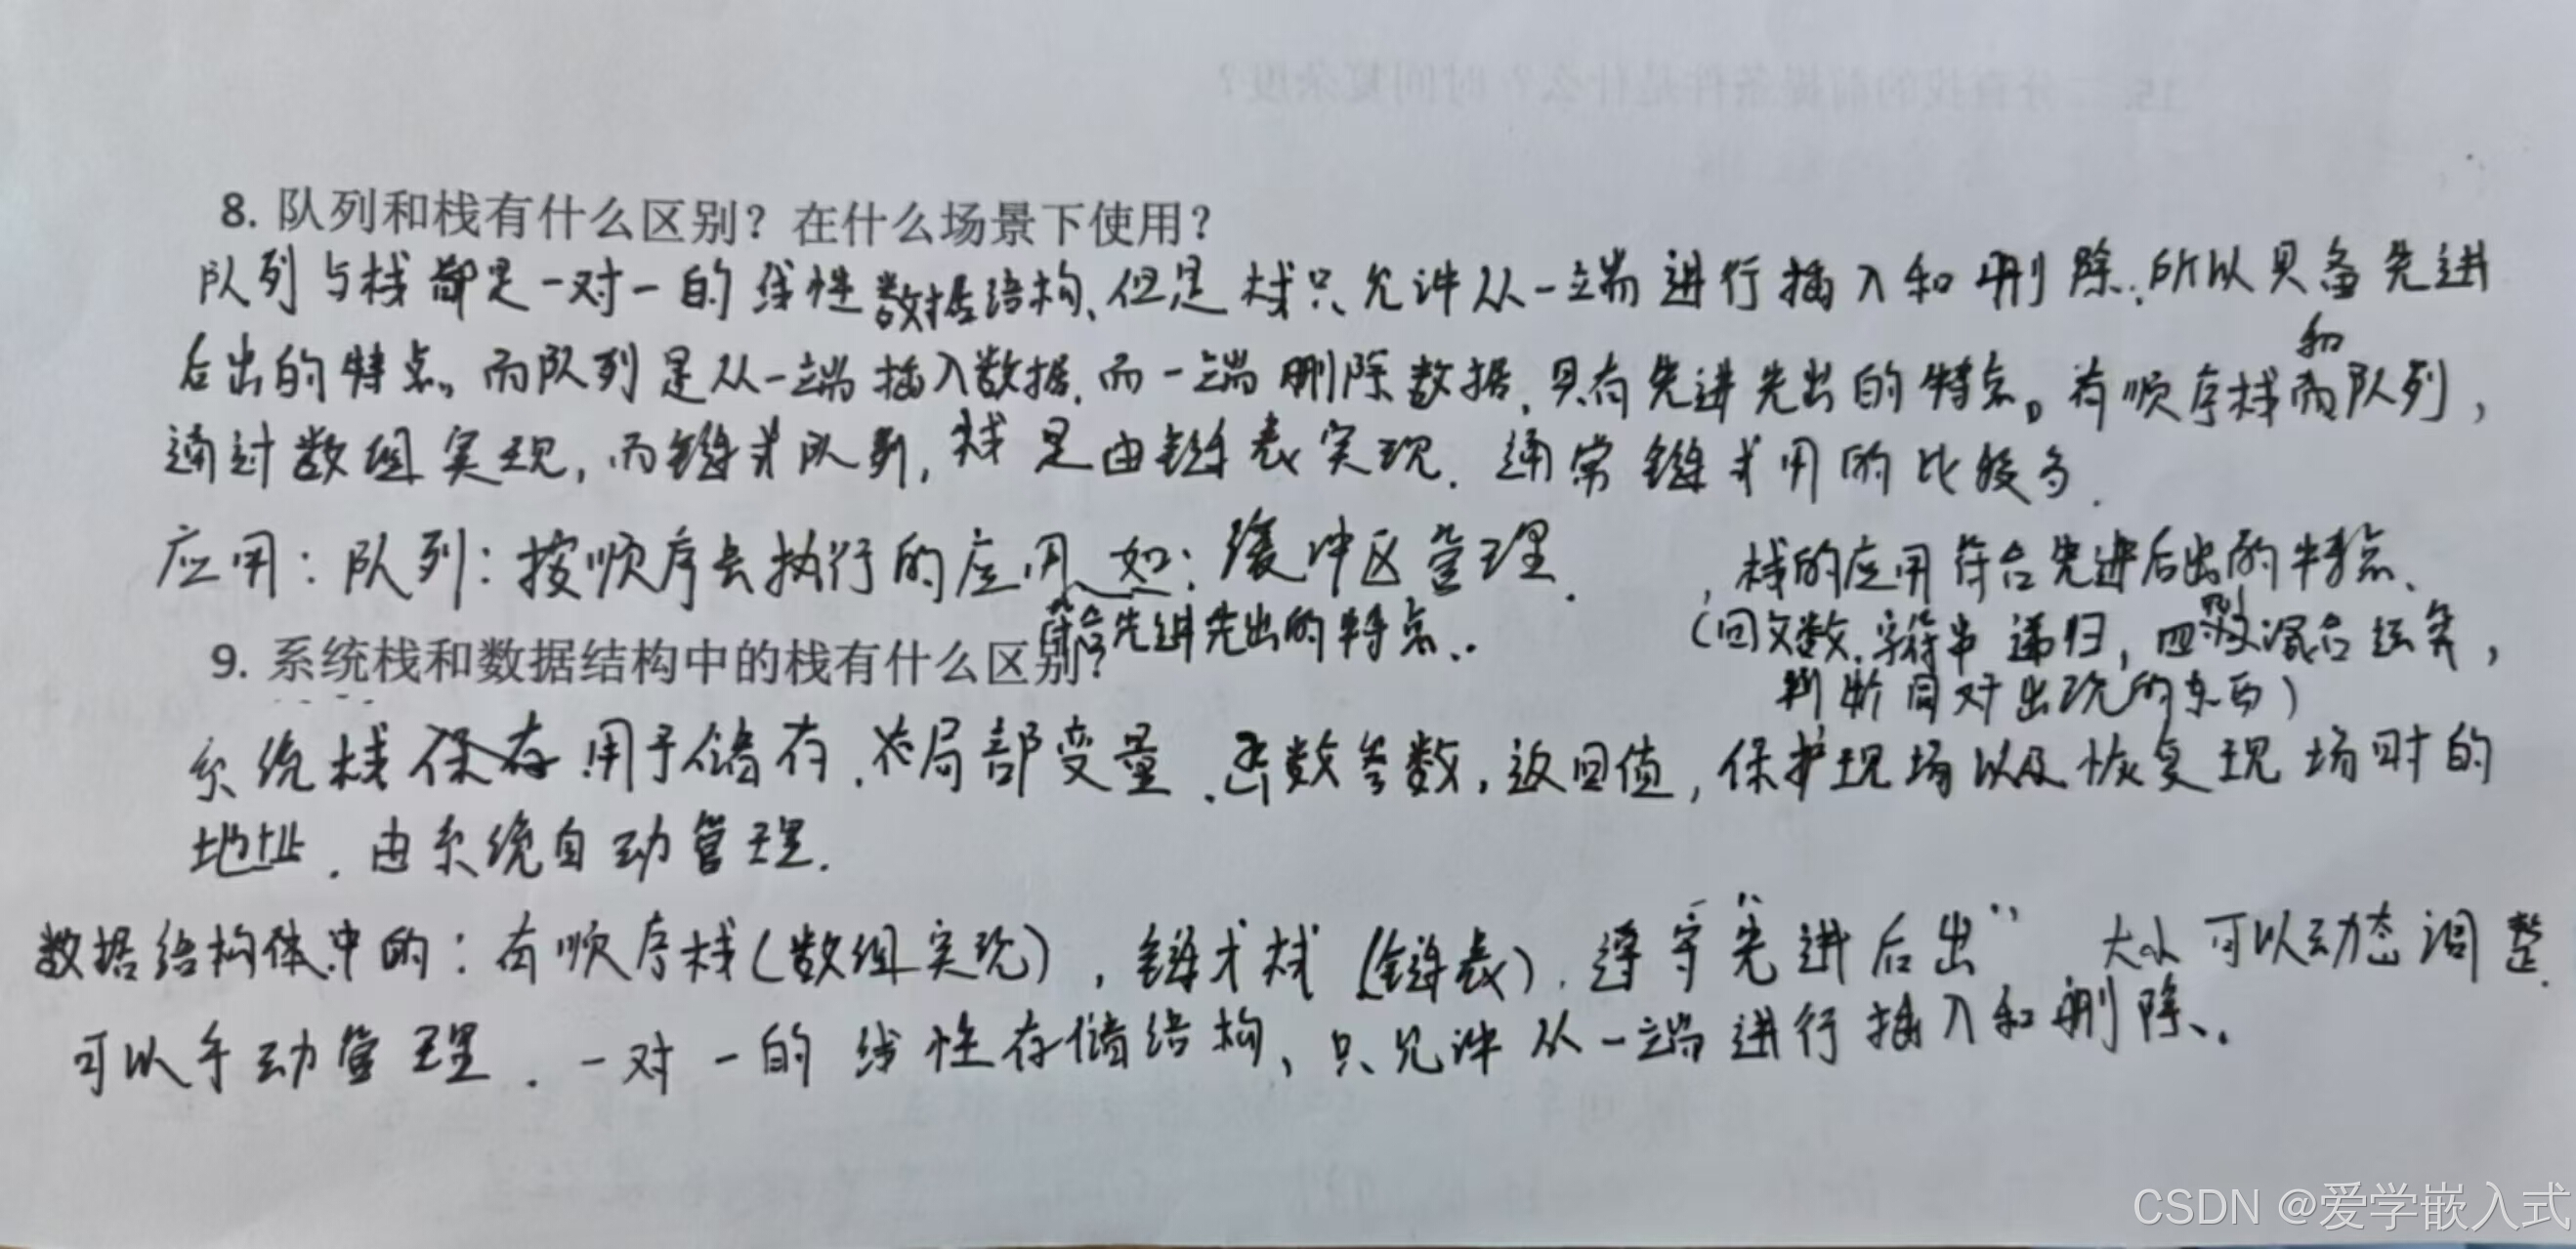 15. 二分查找的前提条件是什么？时间复杂度？
8. 队列和栈有什么区别？在什么场景下使用？
队列与栈都是一对一的线性数据结构、但是栈只允许从一端进行插入和删除.所以具备先进
后出的特点。而队列是从一端插入数据.而一端删除数据,具有先进先出的特点。有顺序栈和队列,
通过数组实现,而链式队列,栈是由链表实现.通常链式用的比较多.
应用:队列:按顺序去执行的应用、如:缓冲区管理.
符合先进先出的特点..
,栈的应用符合先进后出的特点、
(回文数.字符串 递归,四则混合运算,
判断同对出现的东西)
9. 系统栈和数据结构中的栈有什么区别？
系统栈保存用于储存.局部变量.函数参数,返回值,保护现场以及恢复现场时的
地址.由系统自动管理.
数据结构体中的:有顺序栈(数组实现),链式栈(链表).遵守“先进后出” 大小可以动态调整.
可以手动管理.一对一的线性存储结构、只允许从一端进行插入和删除、.
CSDN @爱学嵌入式